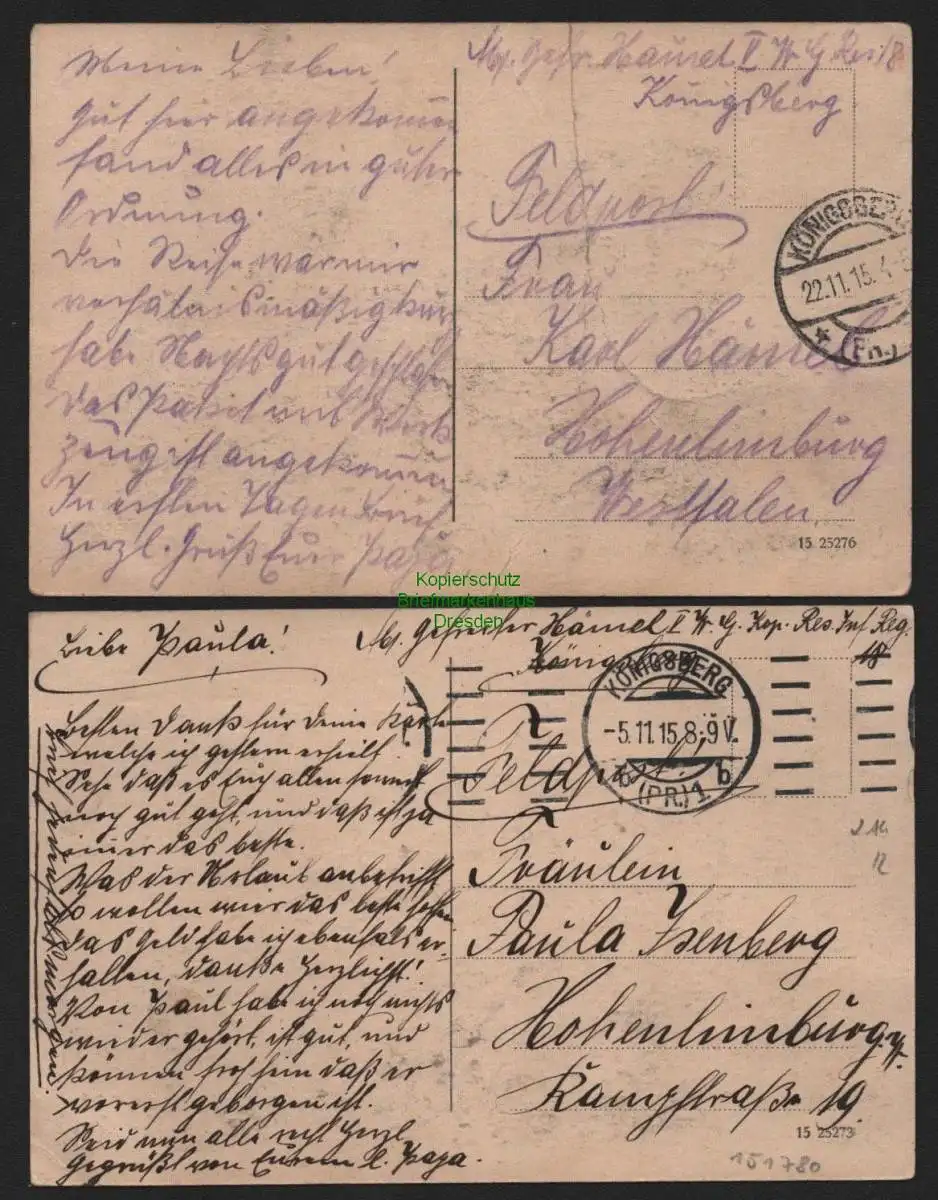 Meine Lieben!
gut hier angekomm
fand alles in guter
Ordnung.
Die Reise war mir
verhältnismäßig kurz
habe Nachts gut geschlafen
Das Paket mit Werk
zeug ist angekommen
In ersten Tagen Brief
Herzl. Grüß Euer Papa
Gefr. Hämel II W. G. Res. 18
Königsberg
Feldpost!
Frau
Karl Hämel
Hohenlimburg
Westfalen.
KÖNIGSBERG
22.11.15. 4-5
* (PR.)
15 25276
Kopierschutz
Briefmarkenhaus
Dresden
Liebe Paula!
Gefreiter Hämel II W. G. Kop. Res. Inf. Reg.
18
Königsberg
KÖNIGSBERG
-5.11.15.8-9V.
b (PR.) 1 b
Feldpost.
Fräulein
Paula Isenberg
Hohenlimburg i/W.
Kampfstraße 19.
15 25273
151780
Besten Dank für deine Karte
welche ich gestern erhielt
Sehe daß es Euch allen soweit
noch gut geht, und daß ist ja
immer das beste.
Was der Urlaub anbetrifft
so wollen wir das beste hoffen
Das Geld habe ich ebenfals er-
halten, danke Herzlichst!
Von Paul habe ich noch nichts
wieder gehört, ist gut, und
können froh sein daß er
vorerst geborgen ist.
Seid nun alle recht Herzl.
Gegrüßt von Eurem l. Papa.